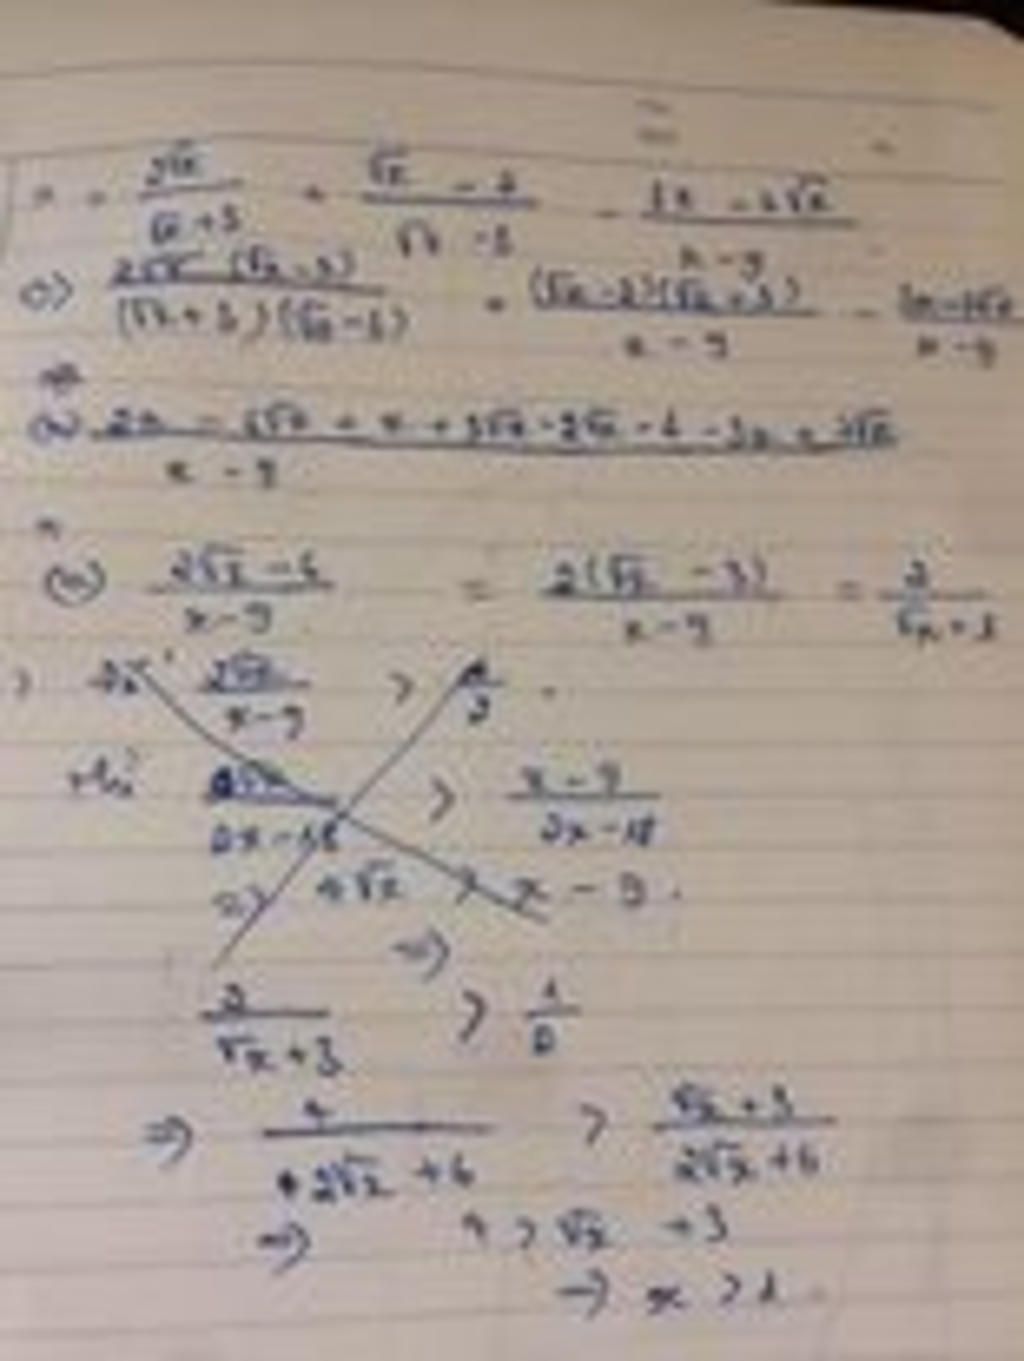 2√x / √x + 3 + √x - 2 / √x - 3 - 3x - 3√x / x - 9
2√x (√x - 3) / (√x + 3)(√x - 3) + (√x - 2)(√x + 3) / x - 9 - 3x - 3√x / x - 9
2x - 6√x + x + 3√x - 2√x - 6 - 3x + 3√x / x - 9
2√x - 6 / x - 9 = 2(√x - 3) / x - 9 = 2 / √x + 3
2√x / x - 9 > 1 / 2
4√x / 2x - 18 > x - 9 / 2x - 18
=> 4√x > x - 9
=>
2 / √x + 3 > 1 / 2
=> 4 / 2√x + 6 > √x + 3 / 2√x + 6
=> 4 > √x + 3
=> x > 1